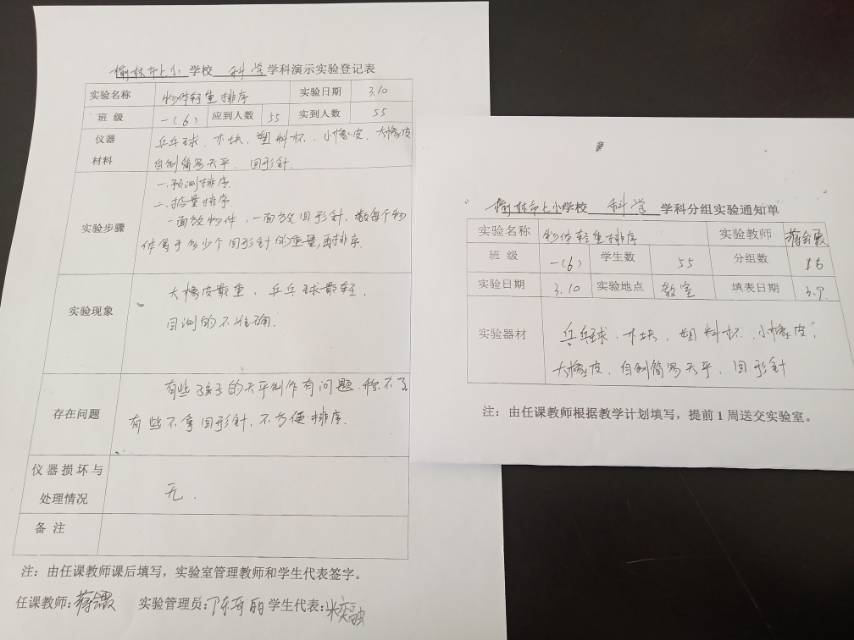 榆林市上小学校 科学学科演示实验登记表
实验名称 物体轻重排序 实验日期 3.10
班 级 一(6) 应到人数 55 实到人数 55
仪器材料 乒乓球、木块、塑料杯、小橡皮、大橡皮
自制简易天平、回形针
实验步骤 一.预测排序
二.掂量排序
一面放物件,一面放回形针,数每个物
件等于多少个回形针的重量,再排序.
实验现象 大橡皮最重,乒乓球最轻.
目测的不准确.
存在问题 有些孩子的天平制作有问题,称不了
有些不拿回形针,不方便排序.
仪器损坏与处理情况 无.
备 注
注:由任课教师课后填写,实验室管理教师和学生代表签字。
任课教师: 实验管理员: 学生代表:
榆林市上小学校 科学 学科分组实验通知单
实验名称 物体轻重排序 实验教师
班 级 一(6) 学生数 55 分组数
实验日期 3.10 实验地点 教室 填表日期 3.9.
实验器材 乒乓球、木块、塑料杯、小橡皮、
大橡皮、自制简易天平、回形针
注:由任课教师根据教学计划填写,提前1周送交实验室。